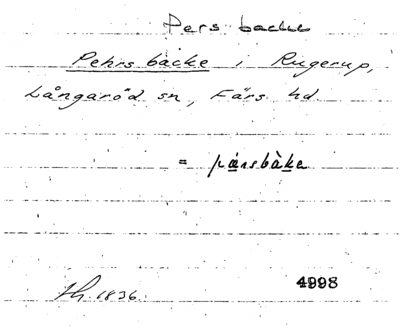 Pers backe
Pehrs backe i Rugerup,
Långaröd sn, Färs hd.
= pärsbàka
1836.
4998